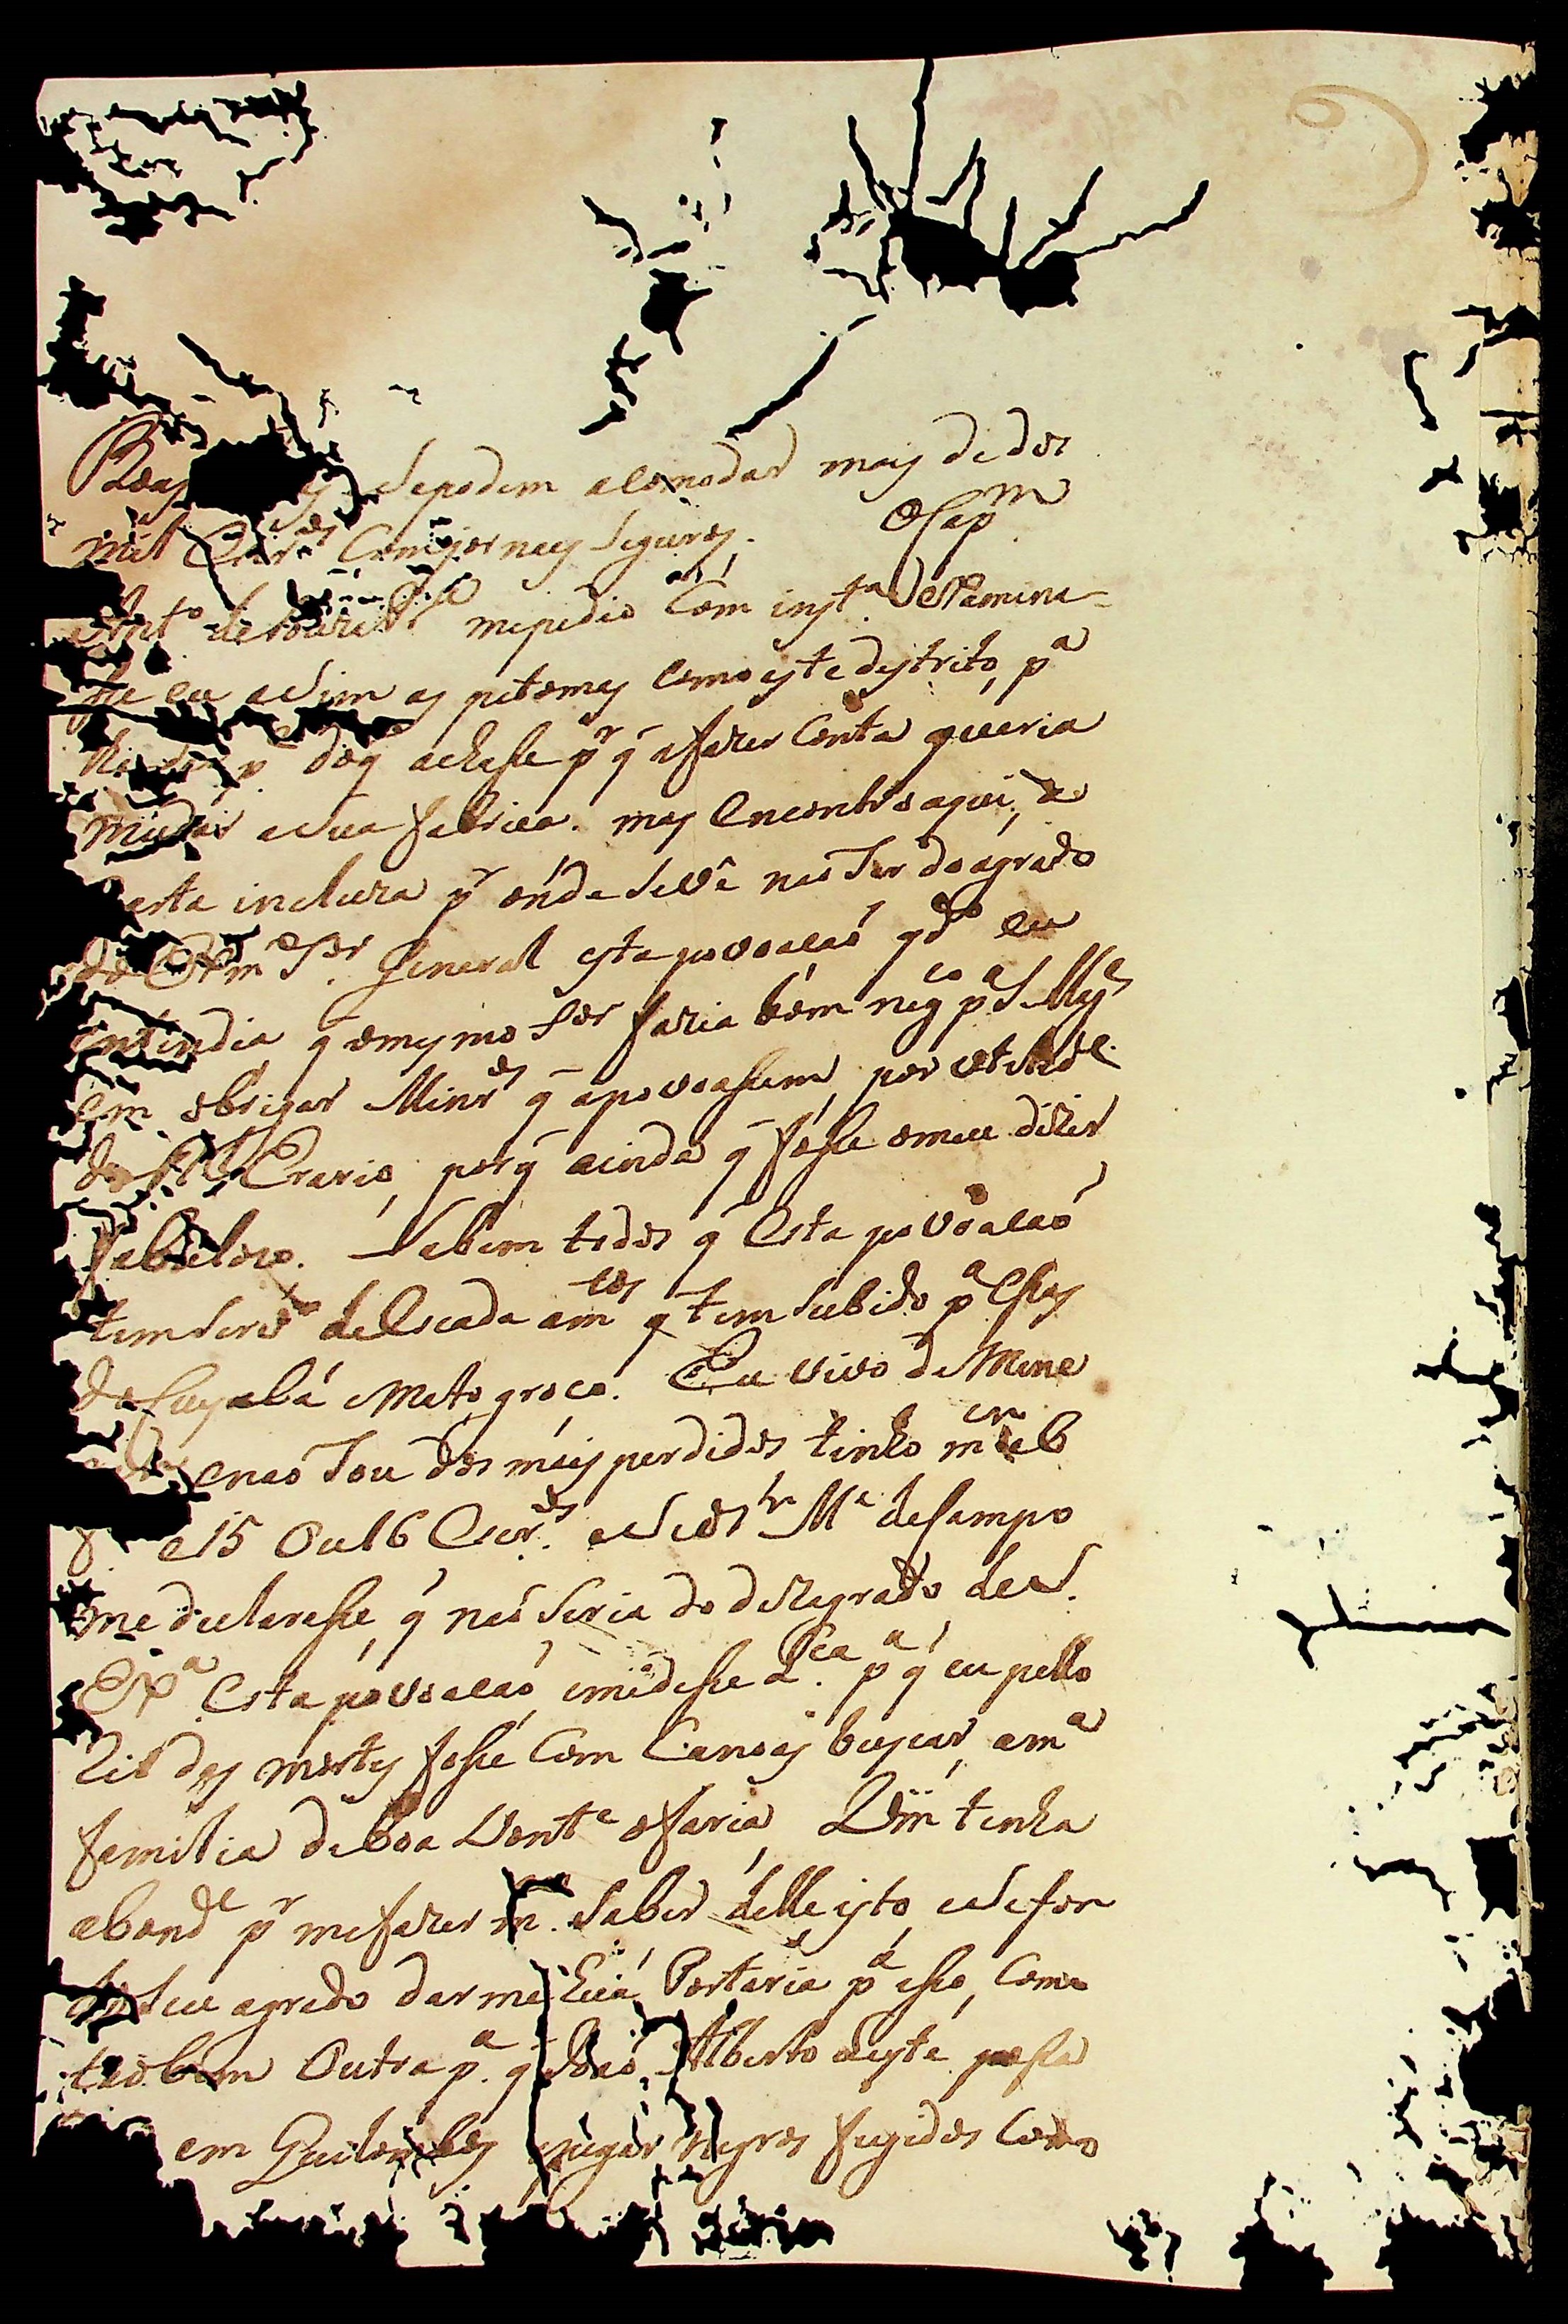 sepodem acomodar mais de dos
mil Escr.os Com jornais Seguros. O Cap.m
Ant.o de mepedio Com inst.a Examina-
se eu asim as pitomas como este destrito, p.a
p.a doq achase p.r q afazer Conta queria
mudar asua fabrica. mas Encontro aqui, a
Carta incluza p.r onde sevê naõ Ser do agrado
do Exm.o S.or General esta povoacaõ q.do eu
entendia q omesmo S.or fazia bom neg.co p.a S. Mag.e
em obrigar Minr.os q apovoassem, por utilid.e
do R.l Erario, porq ainda q fose omeu dizer
fabuloso. Sabem todos q Esta povoacaõ
tem servido de Escada am.tos q tem Subido p.a Essas
do Cuyabá eMato groco. Eu vivo de Mine
enaõ Sou dos mais perdidos tinho m.er e 6
f. e 15 Ou 16 Escr.os eseos S.r M.e de Campo
me declarase q naõ seria do dezagrado de S.
Ex.a Esta povoacaõ, emedese a L.ca p.a q eu pello
Rio das mortes fose Com Canoas buscar am.a
familia deboa Vont.e ofaria, Vm tenha
abond.e p.r mefazer m. Saber delle isto, esefor
do seu agrado darme huã Portaria p.a esse, Como
taobem Outra p.a q Joaõ Alberto deste posa
em Quilombos pugar Negros fugidos Como